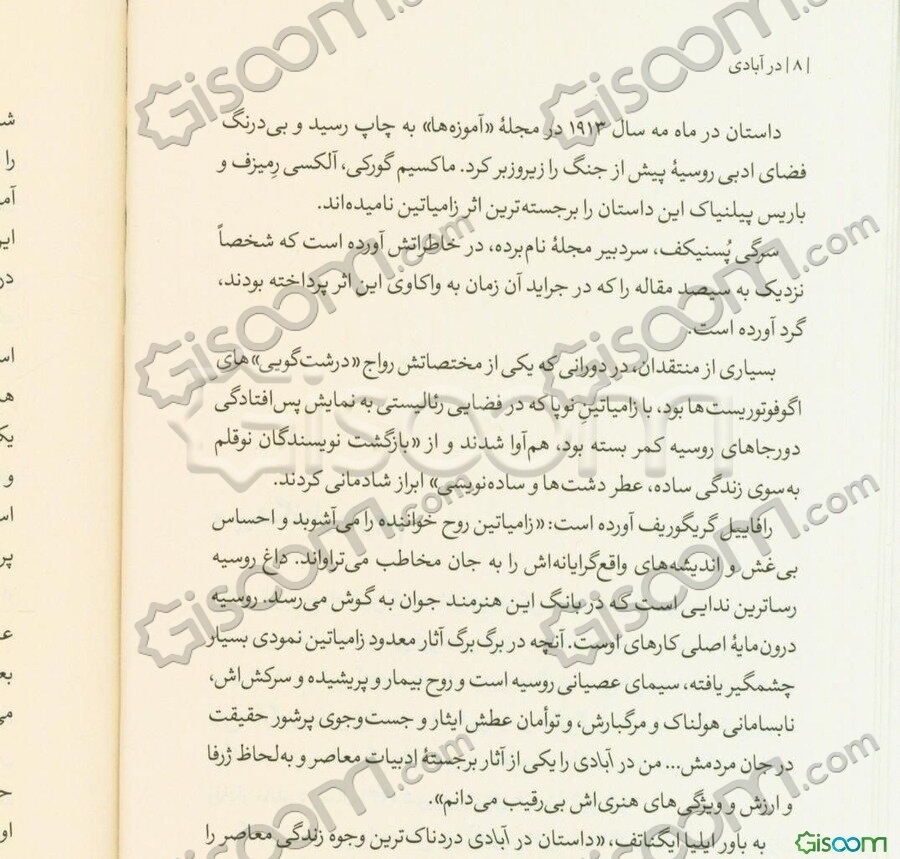 |۸| در آبادی
داستان در ماه مه سال ۱۹۱۳ در مجلهٔ «آموزه‌ها» به چاپ رسید و بی‌درنگ
فضای ادبی روسیهٔ پیش از جنگ را زیروزبر کرد. ماکسیم گورکی، آلکسی رِمیزف و
باریس پیلنیاک این داستان را برجسته‌ترین اثر زامیاتین نامیده‌اند.
سرگی پُسنیکف، سردبیر مجلهٔ نام‌برده، در خاطراتش آورده است که شخصاً
نزدیک به سیصد مقاله را که در جراید آن زمان به واکاوی این اثر پرداخته بودند،
گرد آورده است.
بسیاری از منتقدان، در دورانی که یکی از مختصاتش رواج «درشت‌گویی»های
اگوفوتوریست‌ها بود، با زامیاتینِ نوپا که در فضایی رئالیستی به نمایش پس‌افتادگی
دورجاهای روسیه کمر بسته بود، هم‌آوا شدند و از «بازگشت نویسندگان نوقلم
به‌سوی زندگی ساده، عطر دشت‌ها و ساده‌نویسی» ابراز شادمانی کردند.
رافاییل گریگوریف آورده است: «زامیاتین روح خواننده را می‌آشوبد و احساس
بی‌غش و اندیشه‌های واقع‌گرایانه‌اش را به جان مخاطب می‌تراواند. داغ روسیه
رساترین ندایی است که در بانگ این هنرمند جوان به گوش می‌رسد. روسیه
درون‌مایهٔ اصلی کارهای اوست. آنچه در برگ‌برگ آثار معدود زامیاتین نمودی بسیار
چشمگیر یافته، سیمای عصیانی روسیه است و روح بیمار و پریشیده و سرکش‌اش،
نابسامانی هولناک و مرگبارش، و توأمان عطش ایثار و جست‌وجوی پرشور حقیقت
در جان مردمش... من در آبادی را یکی از آثار برجستهٔ ادبیات معاصر و به‌لحاظ ژرفا
و ارزش و ویژگی‌های هنری‌اش بی‌رقیب می‌دانم».
به باور ایلیا ایگناتف، «داستان در آبادی دردناک‌ترین وجوه زندگی معاصر را
Giscom.com
Giscom.com
Giscom.com
Giscom.com
Giscom.com
Giscom.com
Giscom.com
Giscom
Giscom